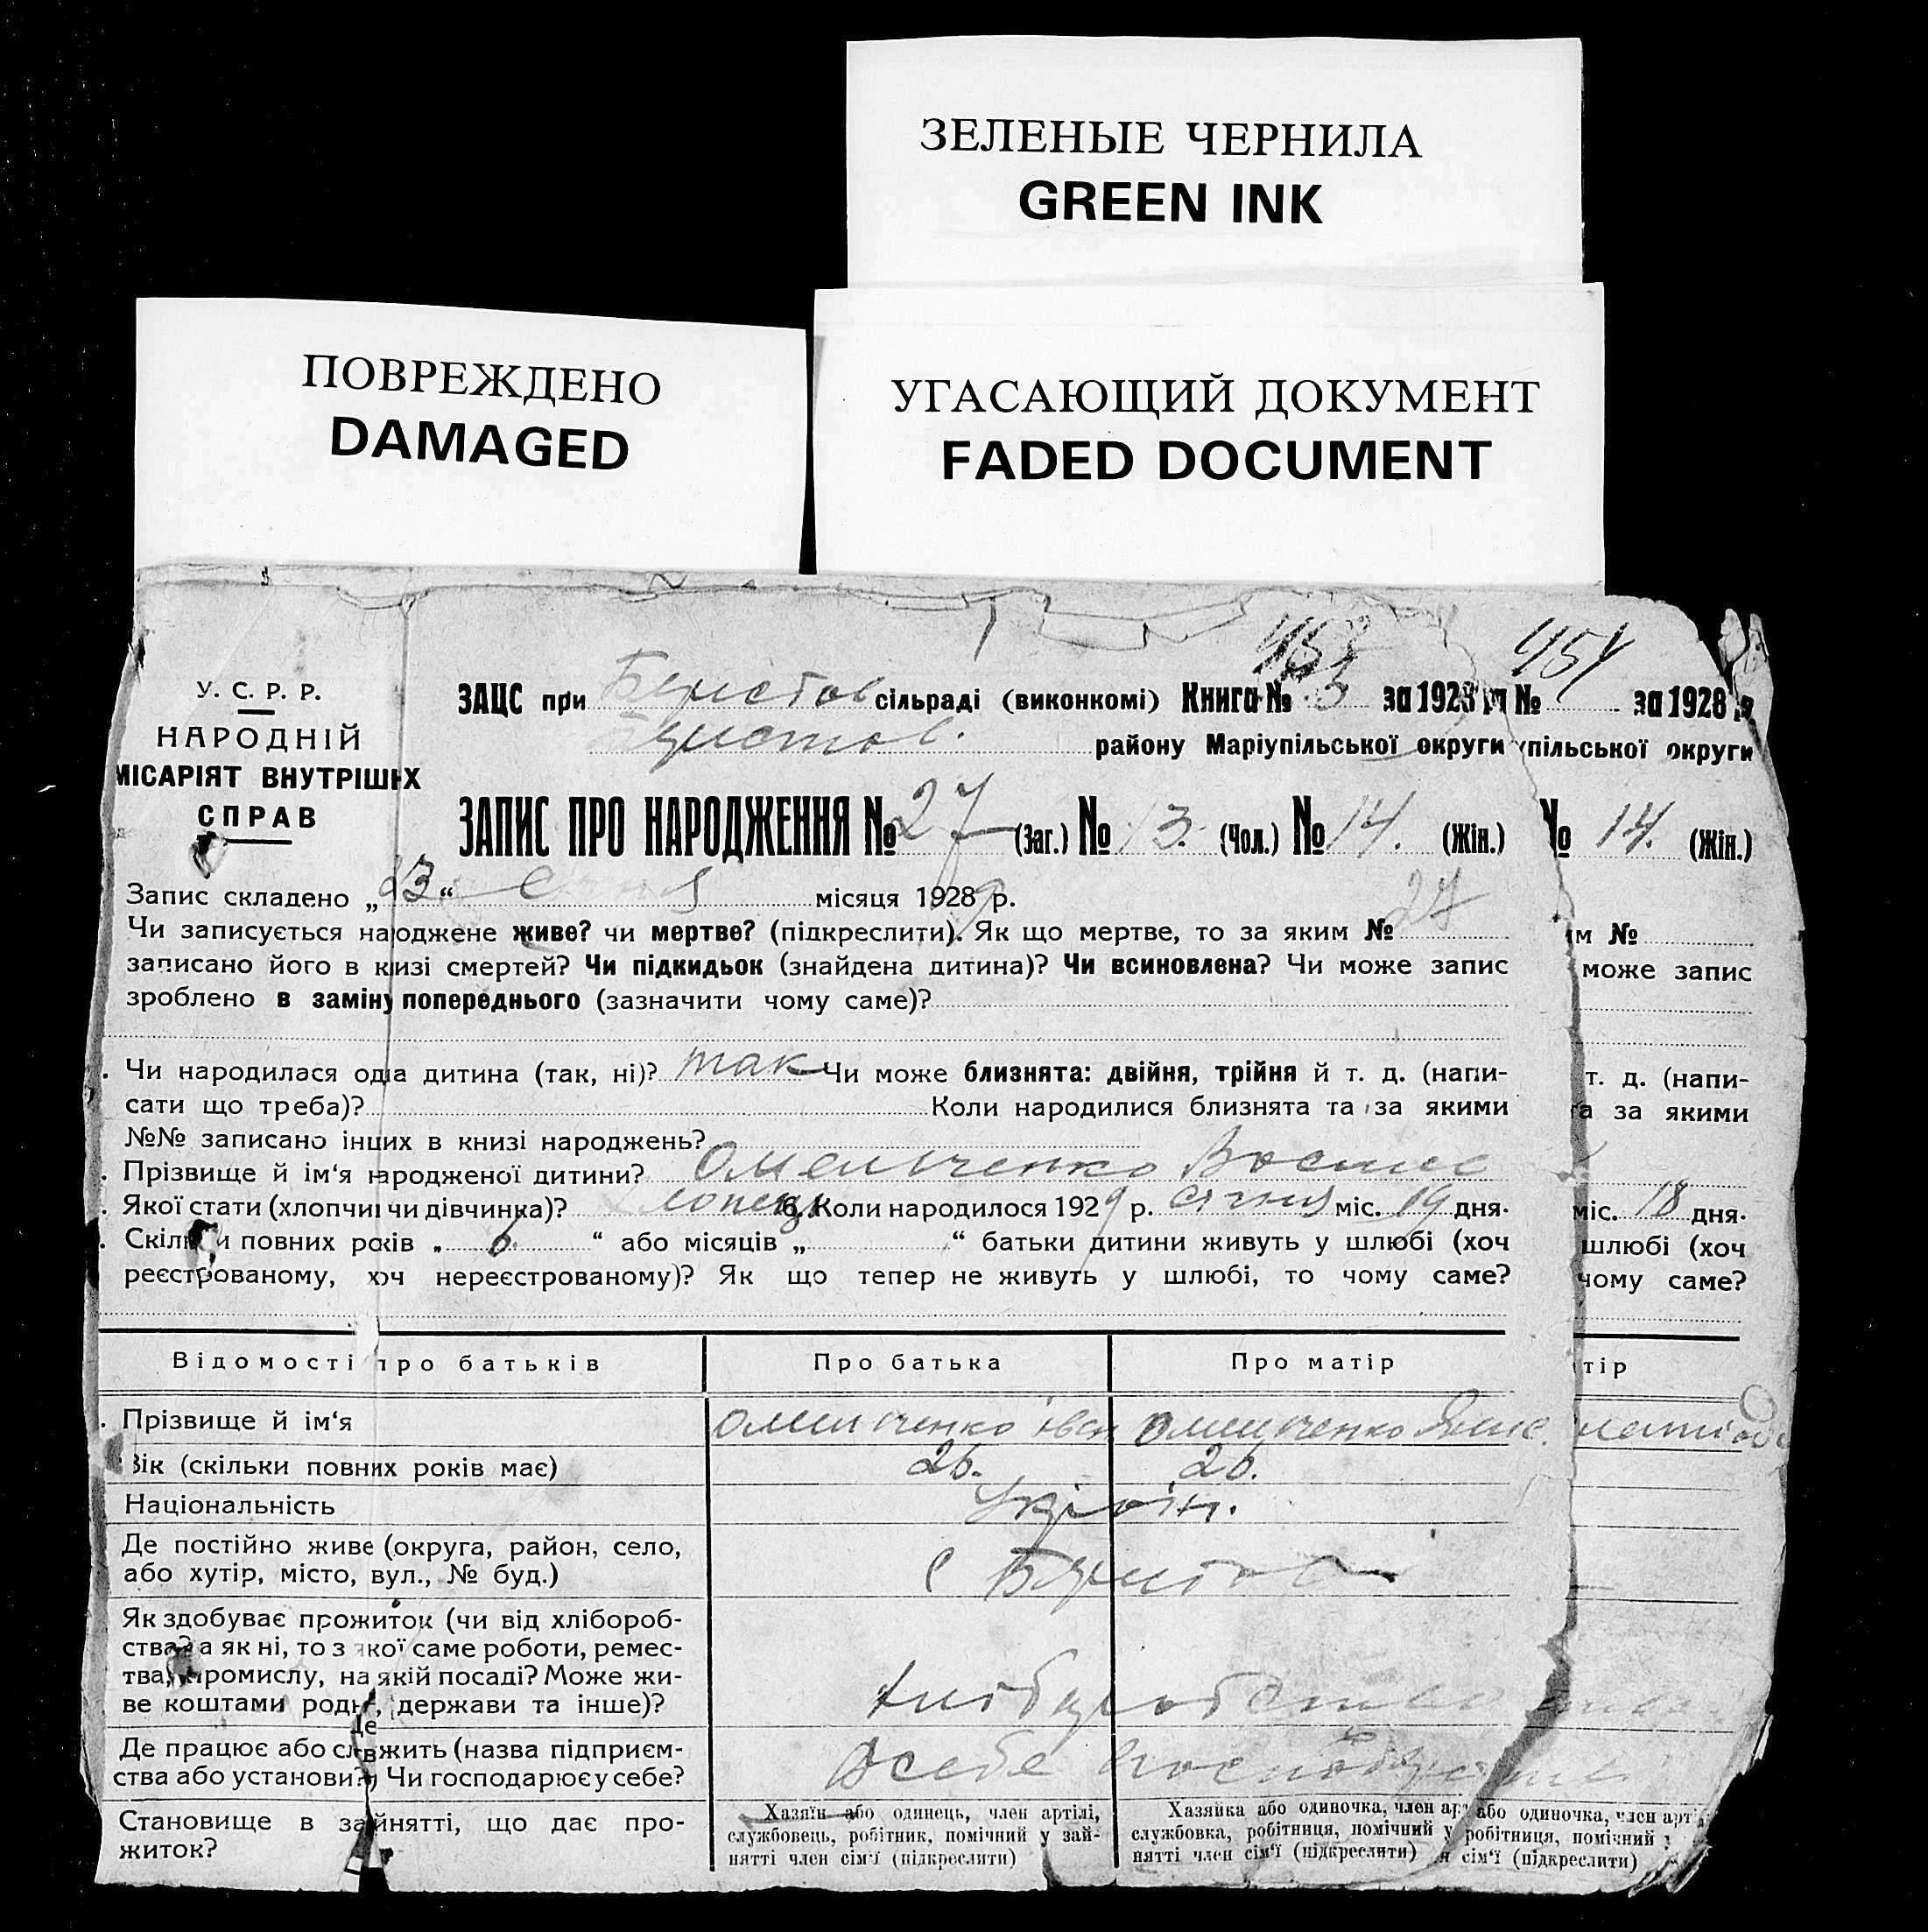 ЗЕЛЕНЫЕ ЧЕРНИЛА
GREEN INK
ПОВРЕЖДЕНО
DAMAGED
УГАСАЮЩИЙ ДОКУМЕНТ
FADED DOCUMENT
454
У. С. Р. Р.
НАРОДНІЙ
МІСАРІЯТ ВНУТРІШНІХ
СПРАВ
ЗАЦС при Берестов сільраді (виконкомі) Книга № 3 за 1928 № за 1928 р
Берестов. району Маріупільської округи упільської округи
ЗАПИС ПРО НАРОДЖЕННЯ № 27 (Заг.) № 13. (Чол.) № 14. (Жін.) № 14. (Жін.)
Запис складено „23“ Січня місяця 1928 р.
27
Чи записується народжене живе? чи мертве? (підкреслити). Як що мертве, то за яким № им №
записано його в кнізі смертей? Чи підкидьок (знайдена дитина)? Чи всиновлена? Чи може запис може запис
зроблено в заміну попереднього (зазначити чому саме)?
Чи народилася одна дитина (так, ні)? так Чи може близнята: двійня, трійня й т. д. (напи- т. д. (напи-
сати що треба)? Коли народилися близнята та за якими та за якими
№№ записано інших в книзі народжень?
Прізвище й ім‘я народженої дитини? Омельченко
Якої стати (хлопчик чи дівчинка)? хлопець 6. Коли народилося 1929 р. січня міс. 19 дня. міс. 18 дня.
Скільки повних років „ 6. “ або місяців „ “ батьки дитини живуть у шлюбі (хоч шлюбі (хоч
реєстрованому, хоч нереєстрованому)? Як що тепер не живуть у шлюбі, то чому саме? чому саме?
Відомості про батьків Про батька Про матір тір
Прізвище й ім‘я Омельченко Іван Омельченко
Вік (скільки повних років має) 26. 26.
Національність Україн.
Де постійно живе (округа, район, село,
або хутір, місто, вул., № буд.) с Берестов
Як здобуває прожиток (чи від хлібороб-
ства? а як ні, то з якої саме роботи, ремес-
тва, промислу, на якій посаді? Може жи-
ве коштами родні, держави та інше)? хліборобство
Де працює або служить (назва підприєм-
ства або установи?) Чи господарює у себе? у себе
Становище в зайнятті, що дає про-
житок?
Хазяїн або одинець, член артілі,
службовець, робітник, помічний у зай-
нятті член сім‘ї (підкреслити)
Хазяйка або одиночка, член ар
службовка, робітниця, помічний у
нятті член сім‘ї (підкреслити)
або одиночка, член арт
робітниця, помічний у
я сім‘ї (підкреслити)